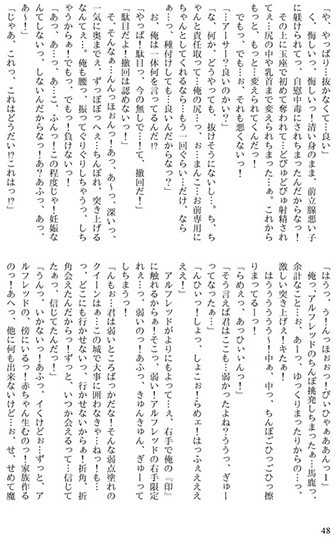 く、悔しい、っ、やっぱり…抜かなくて…良い
「悔しい、悔しい！清い身のまま、前立腺悪い子
に躾けられて、っ、自慰中毒にされちまったんだからなっ！
その上に玉座で初めて奪われて…どびゅどびゅ射精され
てぇ…尻の中や乳首まで変えられちまった…ぁ。これから
もっと、もっと…変えられてくんだっ！
で、もっ…でも…お、それも悪くないっ！
「…アーサー？良いのかい？」
な、何か、どうやっても、抜けそうにないし…、ち、ち
ゃんと責任取って…俺の尻…っ、お…まんこ…お前専用に
ちゃんとしてくれるなら…もう一回ぐらい…だけ、なら
あっ、種付けしても…良いんだからなっ？
お、俺は一体何を言ってるんだ!?
「やっぱ！駄目っ、今の無しで…！て、撤回だ！」
「駄目だよ！撤回は認めないっ！」
そ、そんなぁ…んっほぉんっ！あっ、あ〜っ、深いっ、
一に奥まで、ずっぽずっぽっ…ちんぽぉ、突き上げる
なんてぇ…、俺も腰っ、振ってくりぐりしちゃう、しち
やからぁ！でもっ、でもっ！負けないっ！
「あっ、あ…っ、あ…こ、ふんっ！この程度じゃ！妊娠な
んてしないっ、しないんだからなっ！あ？あふっ、あっ、
あ〜！」
「じゃあ、これっ、これはどうだい!?これはっ!?」
「はうっ、う！うっほぉ…っ！ぴいやぁぁあんっ！」
俺っ、アルフレッドのちんぽ挑発しちまったぁ…馬鹿っ、
余計なこと…お、あーっ、ゆっくりまったりからの…っ、
激しい突き上げぇ！キたぁ！
はうううううぅー！中ぁ、中っ、ちんぽごひっごひっ擦
りまってるーっ！
「らめぇっ、あっひぃぃんっ！」
「そう言えば君はここも…弱かったよね？ううっ、ぎゅー
ってなったぁ…」
「んひぃっ！しょっ、しょこぉ！らめェーはっふぇえええ
えぇ！」
アルフレッドがよりにもよって…ぇ、右手で俺の『印』
に触れるからぁ！そこぉ、弱い！アルフレッドの右手限定
れぇ…っ！弱いのっ！あふっ、きゅんきゅん、ぎゅーって
しちまうっ！
「んもぉ…君は弱いところばっかだな！そんな弱点塗れの
クイーンはぁ…この城で大事に囲わなきゃ…ねっ！も…
っ、どこにも行かせないっ、行かせないからぁ！折角、折
角会えたんだからっ！ずっと、いつか会えるって…信じて
たぁっ、信じてたんだっ！」
「うんっ、いかないっ！あふっ、イくけどぉ…ずっと、ア
ルフレッドの、傍にいるっ！赤ちゃん生むのっ！家族作る
のっ！あへっ、他に何も出来ないけど…お、せ、せめて魔
48